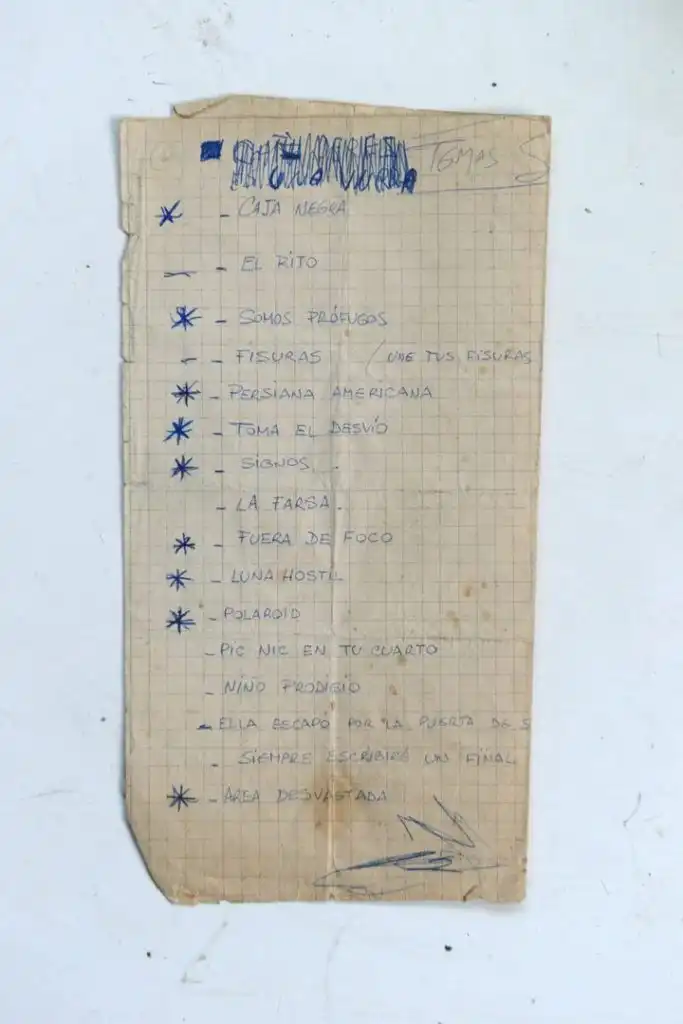 TOMAS
- CAJA NEGRA
- EL RITO
- SOMOS PRÓFUGOS
- FISURAS (UNE TUS FISURAS
- PERSIANA AMERICANA
- TOMA EL DESVÍO
- SIGNOS.
- LA FARSA.
- FUERA DE FOCO
- LUNA HOSTIL
- POLAROID
- PIC NIC EN TU CUARTO
- NIÑO PRODIGIO
- ELLA ESCAPÓ POR LA PUERTA DE S
- SIEMPRE ESCRIBIRÉ UN FINAL
- AREA DESVASTADA